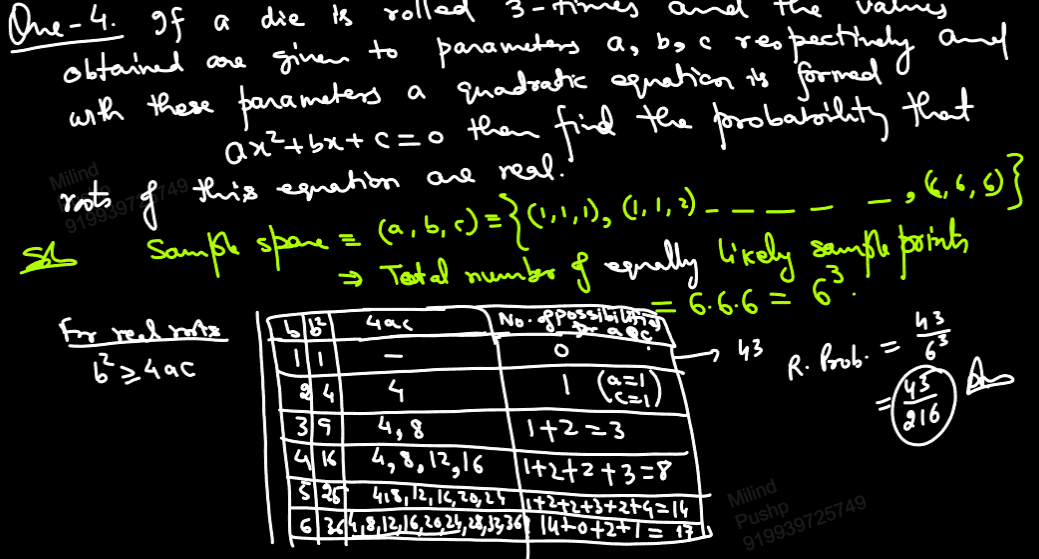 Que-4. If a die is rolled 3-times and the values
obtained are given to parameters a, b, c respectively and
with these parameters a quadratic equation is formed
ax²+bx+c=0 then find the probability that
roots of this equation are real.
Sol Sample space ≡ (a,b,c) ≡ {(1,1,1), (1,1,2) - - - - - -, (6,6,6)}
⇒ Total number of equally likely sample points
= 6.6.6 = 6³.
For real roots
b² ≥ 4ac
b b² 4ac No. of possibilities for a & c
1 1 – 0
2 4 4 1 (a=1 c=1)
3 9 4,8 1+2=3
4 16 4,8,12,16 1+2+2+3=8
5 25 4,8,12,16,20,24 1+2+2+3+2+4=14
6 36 4,8,12,16,20,24,28,32,36 14+0+2+1=17
→ 43
R. Prob. = 43/6³
= 43/216 Ans
Milind
Pushp
919939725749
Milind
Pushp
919939725749